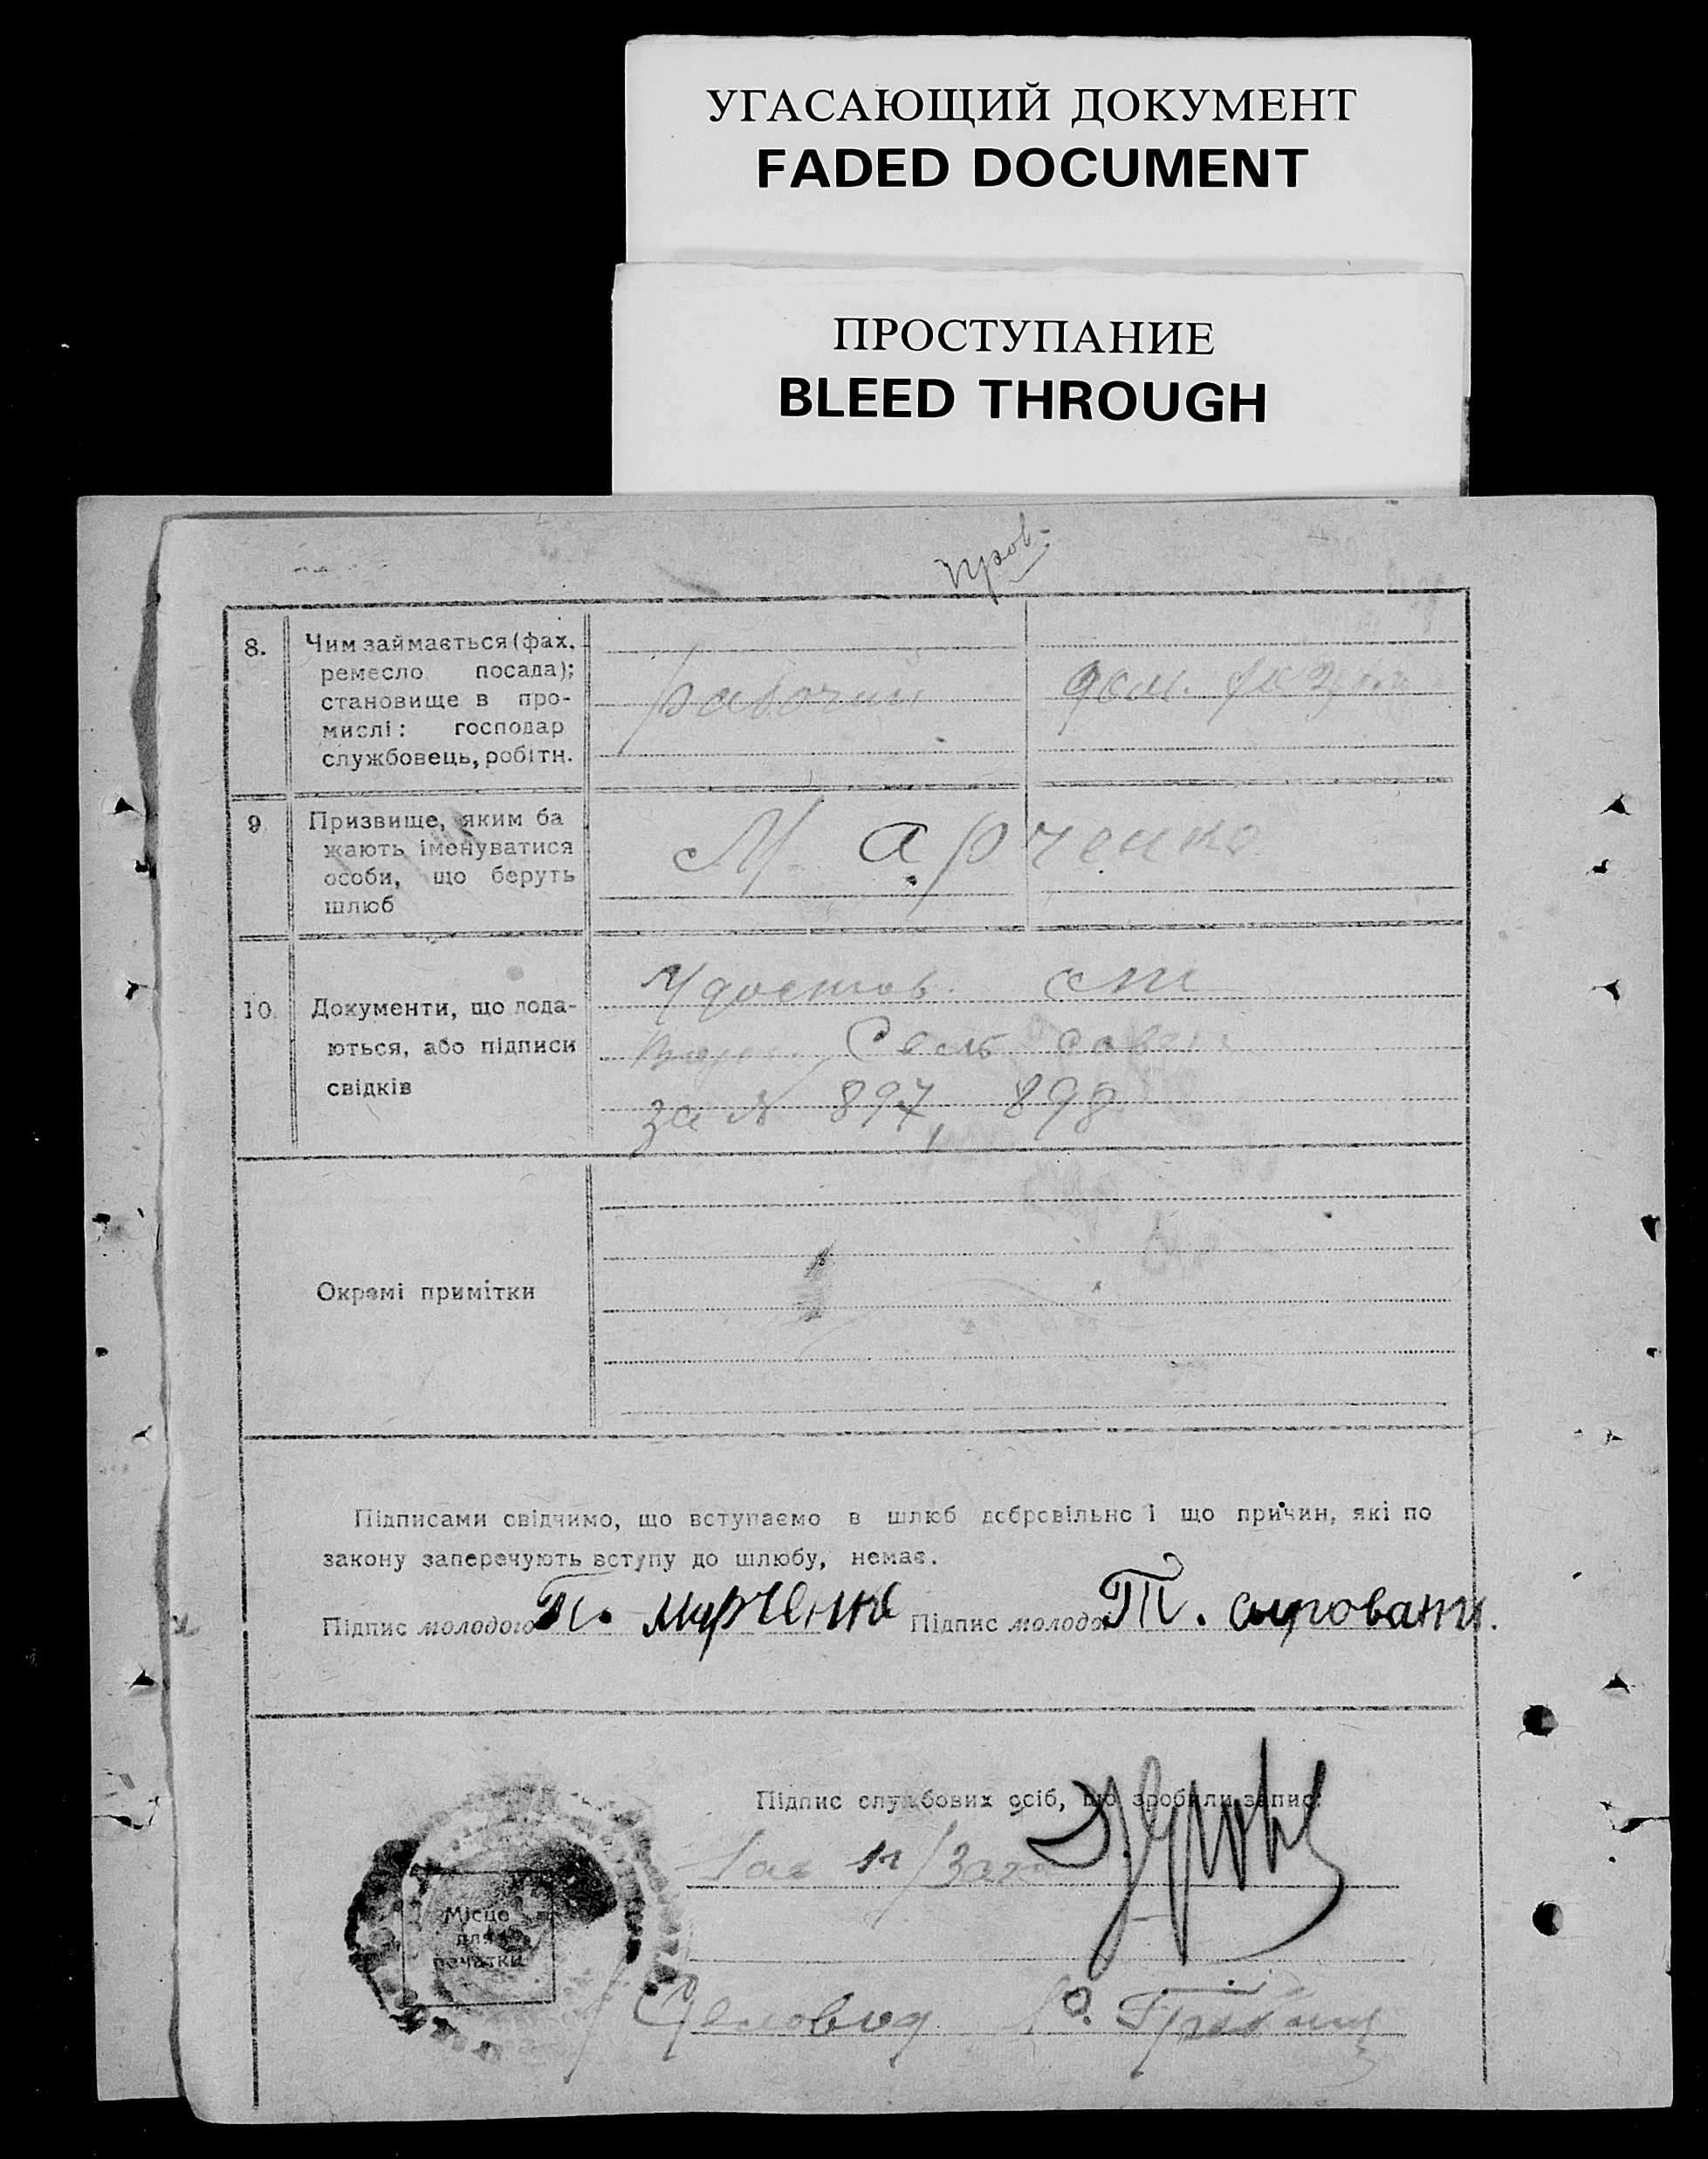 УГАСАЮЩИЙ ДОКУМЕНТ
FADED DOCUMENT
ПРОСТУПАНИЕ
BLEED THROUGH
пров.
8. Чим займається (фах,
ремесло посада);
становище в про-
мислі: господар
службовець, робітн.
рабочий
дом.
9 Призвище, яким ба
жають іменуватися
особи, що беруть
шлюб
Марченко
10. Документи, що пода-
ються, або підписи
свідків
Удостов.
Сель совета
за № 897, 898
Окремі примітки
Підписами свідчимо, що вступаємо в шлюб добровільно і що причин, які по
закону заперечують вступу до шлюбу, немає.
Підпис молодого Т. Марченко Підпис молодо Т. сыровати.
Підпис службових осіб, що зробили запис:
Місце
для
печатки
Діловод